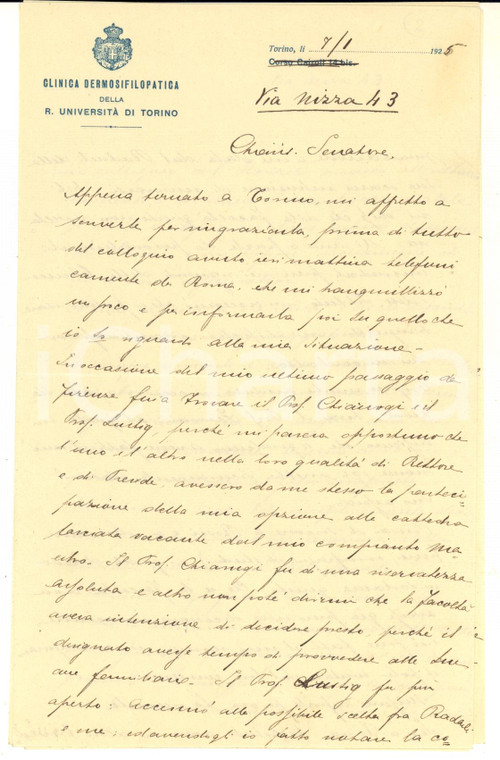 Torino, li 7/1 1925
Corso Cairoli 14 bis.
CLINICA DERMOSIFILOPATICA
DELLA
R. UNIVERSITÀ DI TORINO
Via Nizza 43
Chiariss. Senatore,
Appena tornato a Torino, mi affretto a
scriverle per ringraziarla, prima di tutto
del colloquio avuto ieri mattina telefoni
camente da Roma, che mi tranquillizzò
un poco e per informarla poi su quello che
io so riguardo alla mia situazione -
In occasione del mio ultimo passaggio da
Firenze fui a trovare il Prof. Chiarugi e il
Prof. Lustig, perché mi pareva opportuno che
l'uno e l'altro nella loro qualità di Rettore
e di Preside, avessero da me stesso la parteci-
pazione della mia opzione alla cattedra
lasciata vacante dal mio compianto Ma
estro. Il Prof. Chiarugi fu di una riservatezza
assoluta e altro non poté dirmi che la Facoltà
aveva intenzione di decidere presto, perché il
designato avesse tempo di provvedere alle sue
cure famigliari. Il Prof. Lustig fu più
aperto: accennò alla possibile scelta fra Radaeli
e me; ed avendogli io fatto notare la co